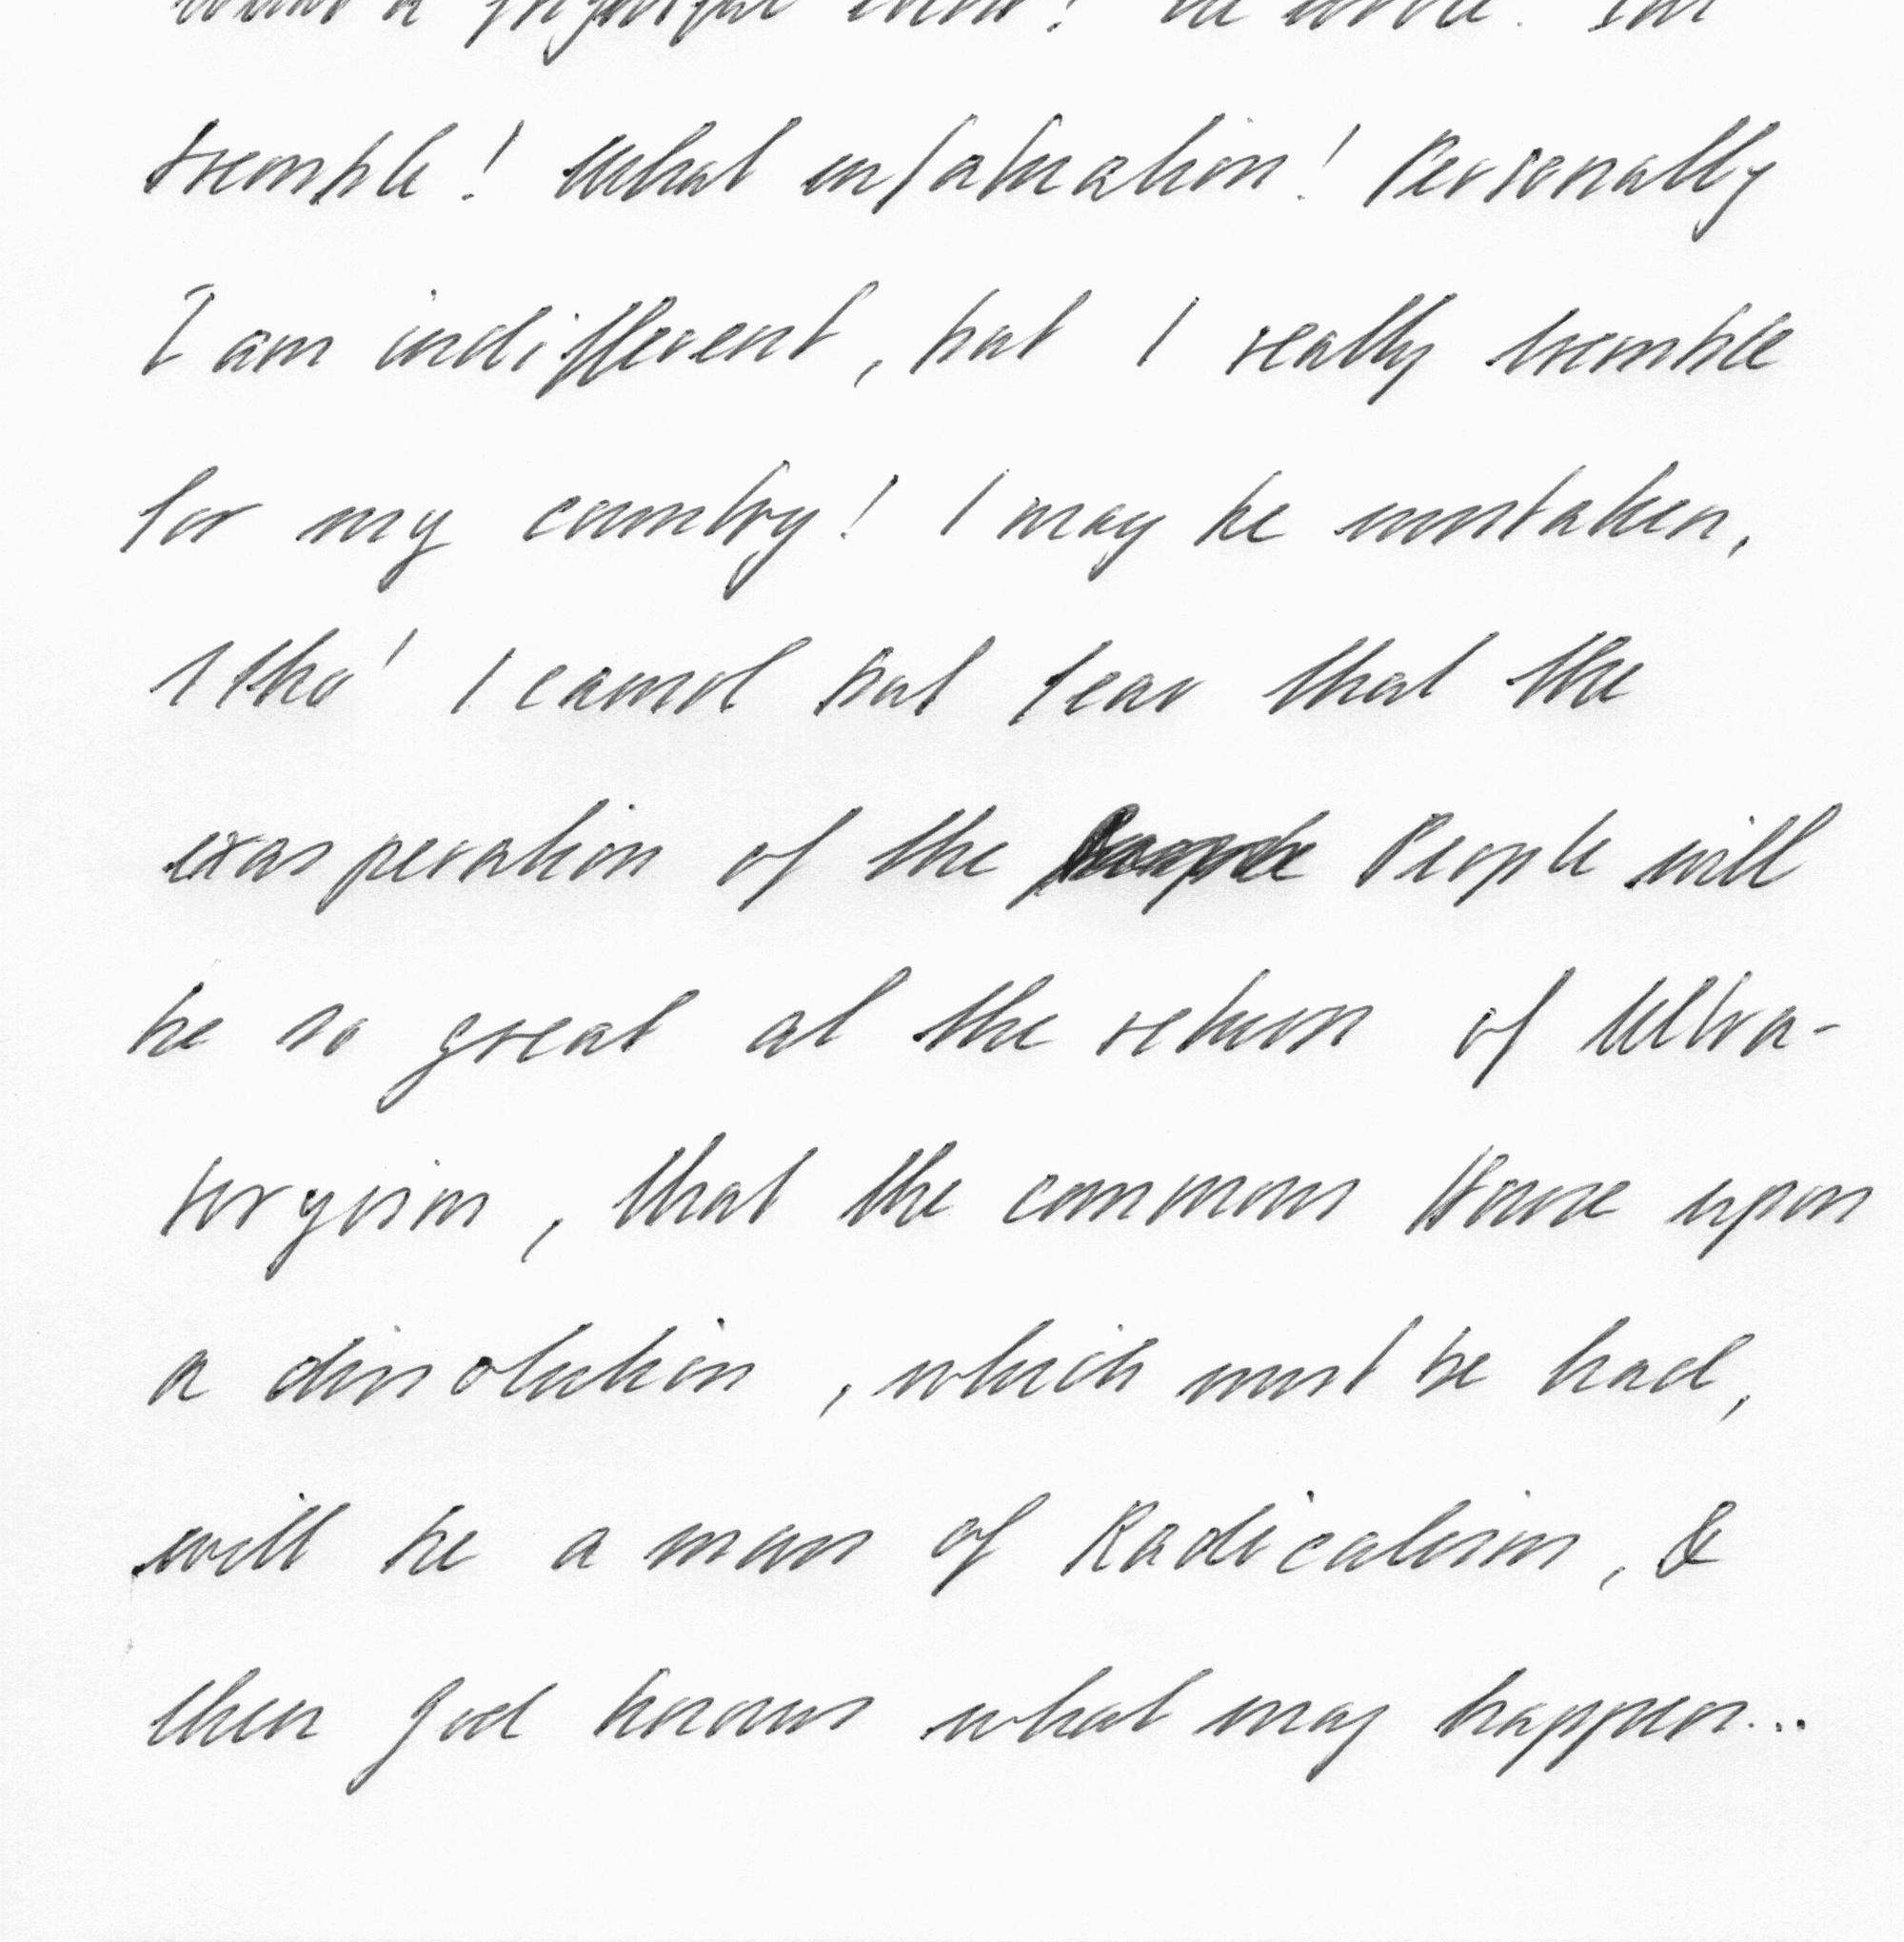 tremble! What infatuation! Personally
I am indifferent, but I really tremble
for my country! I may be mistaken,
tho' I cannot but fear that the
exasperation of the People will
be so great at the return of Ultra-
toryism, that the common House upon
a dissolution, which must be had,
will be a mass of Radicalism, &
then God knows what may happen...